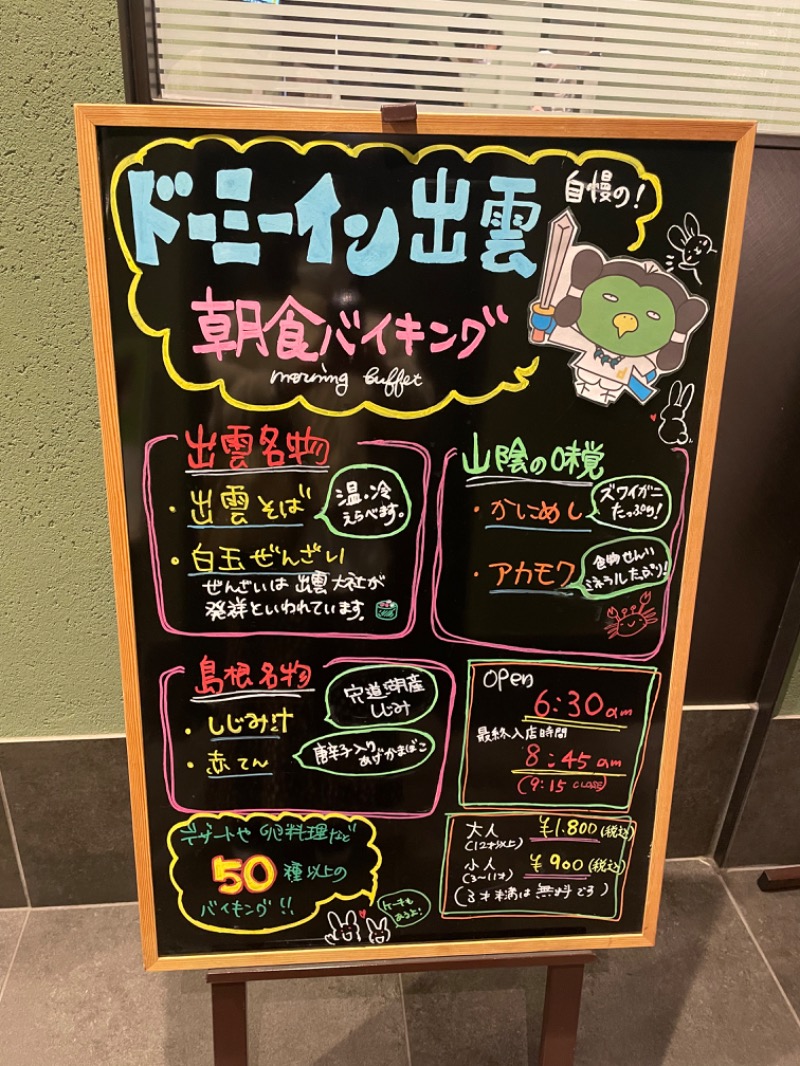 ドーミーイン出雲
自慢の！
朝食バイキング
morning buffet
出雲名物
・出雲そば
温・冷
えらべます。
・白玉ぜんざい
ぜんざいは出雲大社が
発祥といわれています。
山陰の味覚
・かにめし
ズワイガニ
たっぷり！
・アカモク
食物せんい
ミネラルたっぷり！
島根名物
・しじみ汁
宍道湖産
しじみ
・赤てん
唐辛子入り
あげかまぼこ
OPEN
6:30am
最終入店時間
8:45am
(9:15 CLOSE)
デザートや卵料理など
50種以上の
バイキング!!
ケーキも
あるよ！
大人
(12才以上)
¥1,800(税込)
小人
(3~11才)
¥900(税込)
(3才未満は無料です)